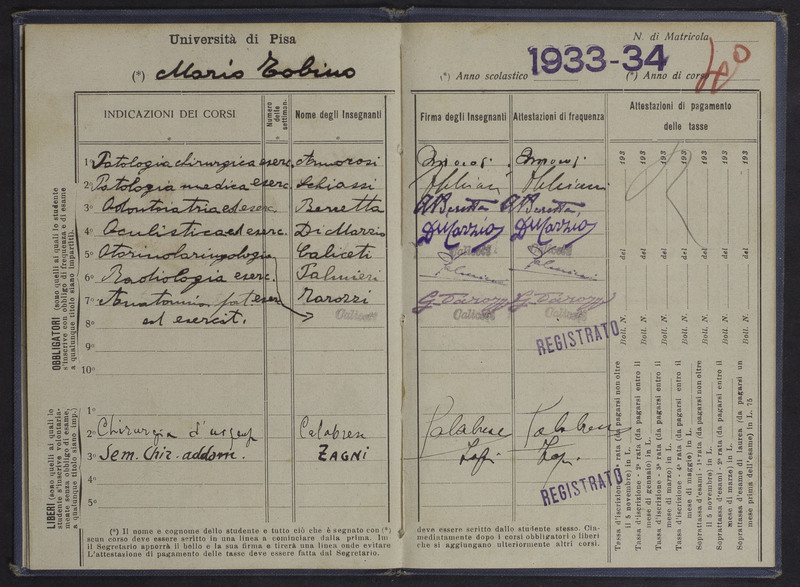 Università di Pisa
(*) Mario Tobino
INDICAZIONI DEI CORSI
Numero delle settiman.
Nome degli Insegnanti
OBBLIGATORI (sono quelli ai quali lo studente s'inscrive con obbligo di frequenza e di esame a qualunque titolo siano impartiti).
1° Patologia chirurgica eserc. Amorosi
2° Patologia medica eserc. Schiassi
3° Odontoiatria ed eserc. Beretta
4° Oculistica ed eserc. Di Marzio
5° Otorinolaringologia Caliceti
6° Radiologia eserc. Palmieri
7° Anatomia pat. eser
8° ed esercit. Caliceti
9°
10°
LIBERI (sono quelli ai quali lo studente s'inscrive volontariamente senza obbligo di esame, a qualunque titolo siano imp.)
1°
2° Chirurgia d'urgen Calabrese
3° Sem. Chir. addom. ZAGNI
4°
5°
(*) Il nome e cognome dello studente e tutto ciò che è segnato con (*)
scun corso deve essere scritto in una linea a cominciare dalla prima. Im
il Segretario apporrà il bollo e la sua firma e tirerà una linea onde evitare
L'attestazione di pagamento delle tasse deve essere fatta dal Segretario.
N. di Matricola
(*) Anno scolastico 1933-34 (*) Anno di cors
Firma degli Insegnanti
Attestazioni di frequenza
Attestazioni di pagamento
delle tasse
193 193 193 193 193 193 193 193
del del del del del del del del
Boll. N. Boll. N. Boll. N. Boll. N. Boll. N. Boll. N. Boll. N. Boll. N.
A Beretta A Beretta
DiMarzio DiMarzio
Caliceti Caliceti
Palmieri Palmieri
Caliceti Caliceti
REGISTRATO
Calabrese Calabrese
REGISTRATO
Tassa d'iscrizione rata (da pagarsi non oltre il 5 novembre) in L.
Tassa d'iscrizione - 2ª rata (da pagarsi entro il mese di gennaio) in L.
Tassa d'iscrizione - 3ª rata (da pagarsi entro il mese di marzo) in L.
Tassa d'iscrizione - 4ª rata (da pagarsi entro il mese di maggio) in L.
Soprattassa d'esami - 1ª rata (da pagarsi non oltre il 5 novembre) in L.
Soprattassa d'esami - 2ª rata (da pagarsi entro il mese di marzo) in L.
Soprattassa d'esame di laurea (da pagarsi un mese prima dell'esame) in L. 75
deve essere scritto dallo studente stesso. Cia-
mediatamente dopo i corsi obbligatori o liberi
che si aggiungano ulteriormente altri corsi.